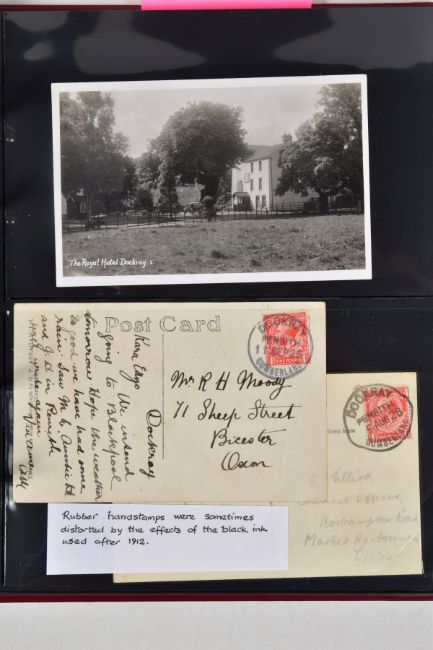 The Royal Hotel Dockray.
Post Card
DOCKRAY
PENRITH
11 SEP 25
CUMBERLAND
Dockray
We intend
going to Blackpool
tomorrow Hope the weather
is good we have had some
rain Saw Mr C.
and in Penrith
Mr R H Moody
71 Sheep Street
Bicester
Oxon
DOCKRAY
PENRITH
AUG 26
CUMBERLAND
Elliott
Council Offices,
Northampton Road
Market Harborough
Rubber handstamps were sometimes
distorted by the effects of the black ink
used after 1912.